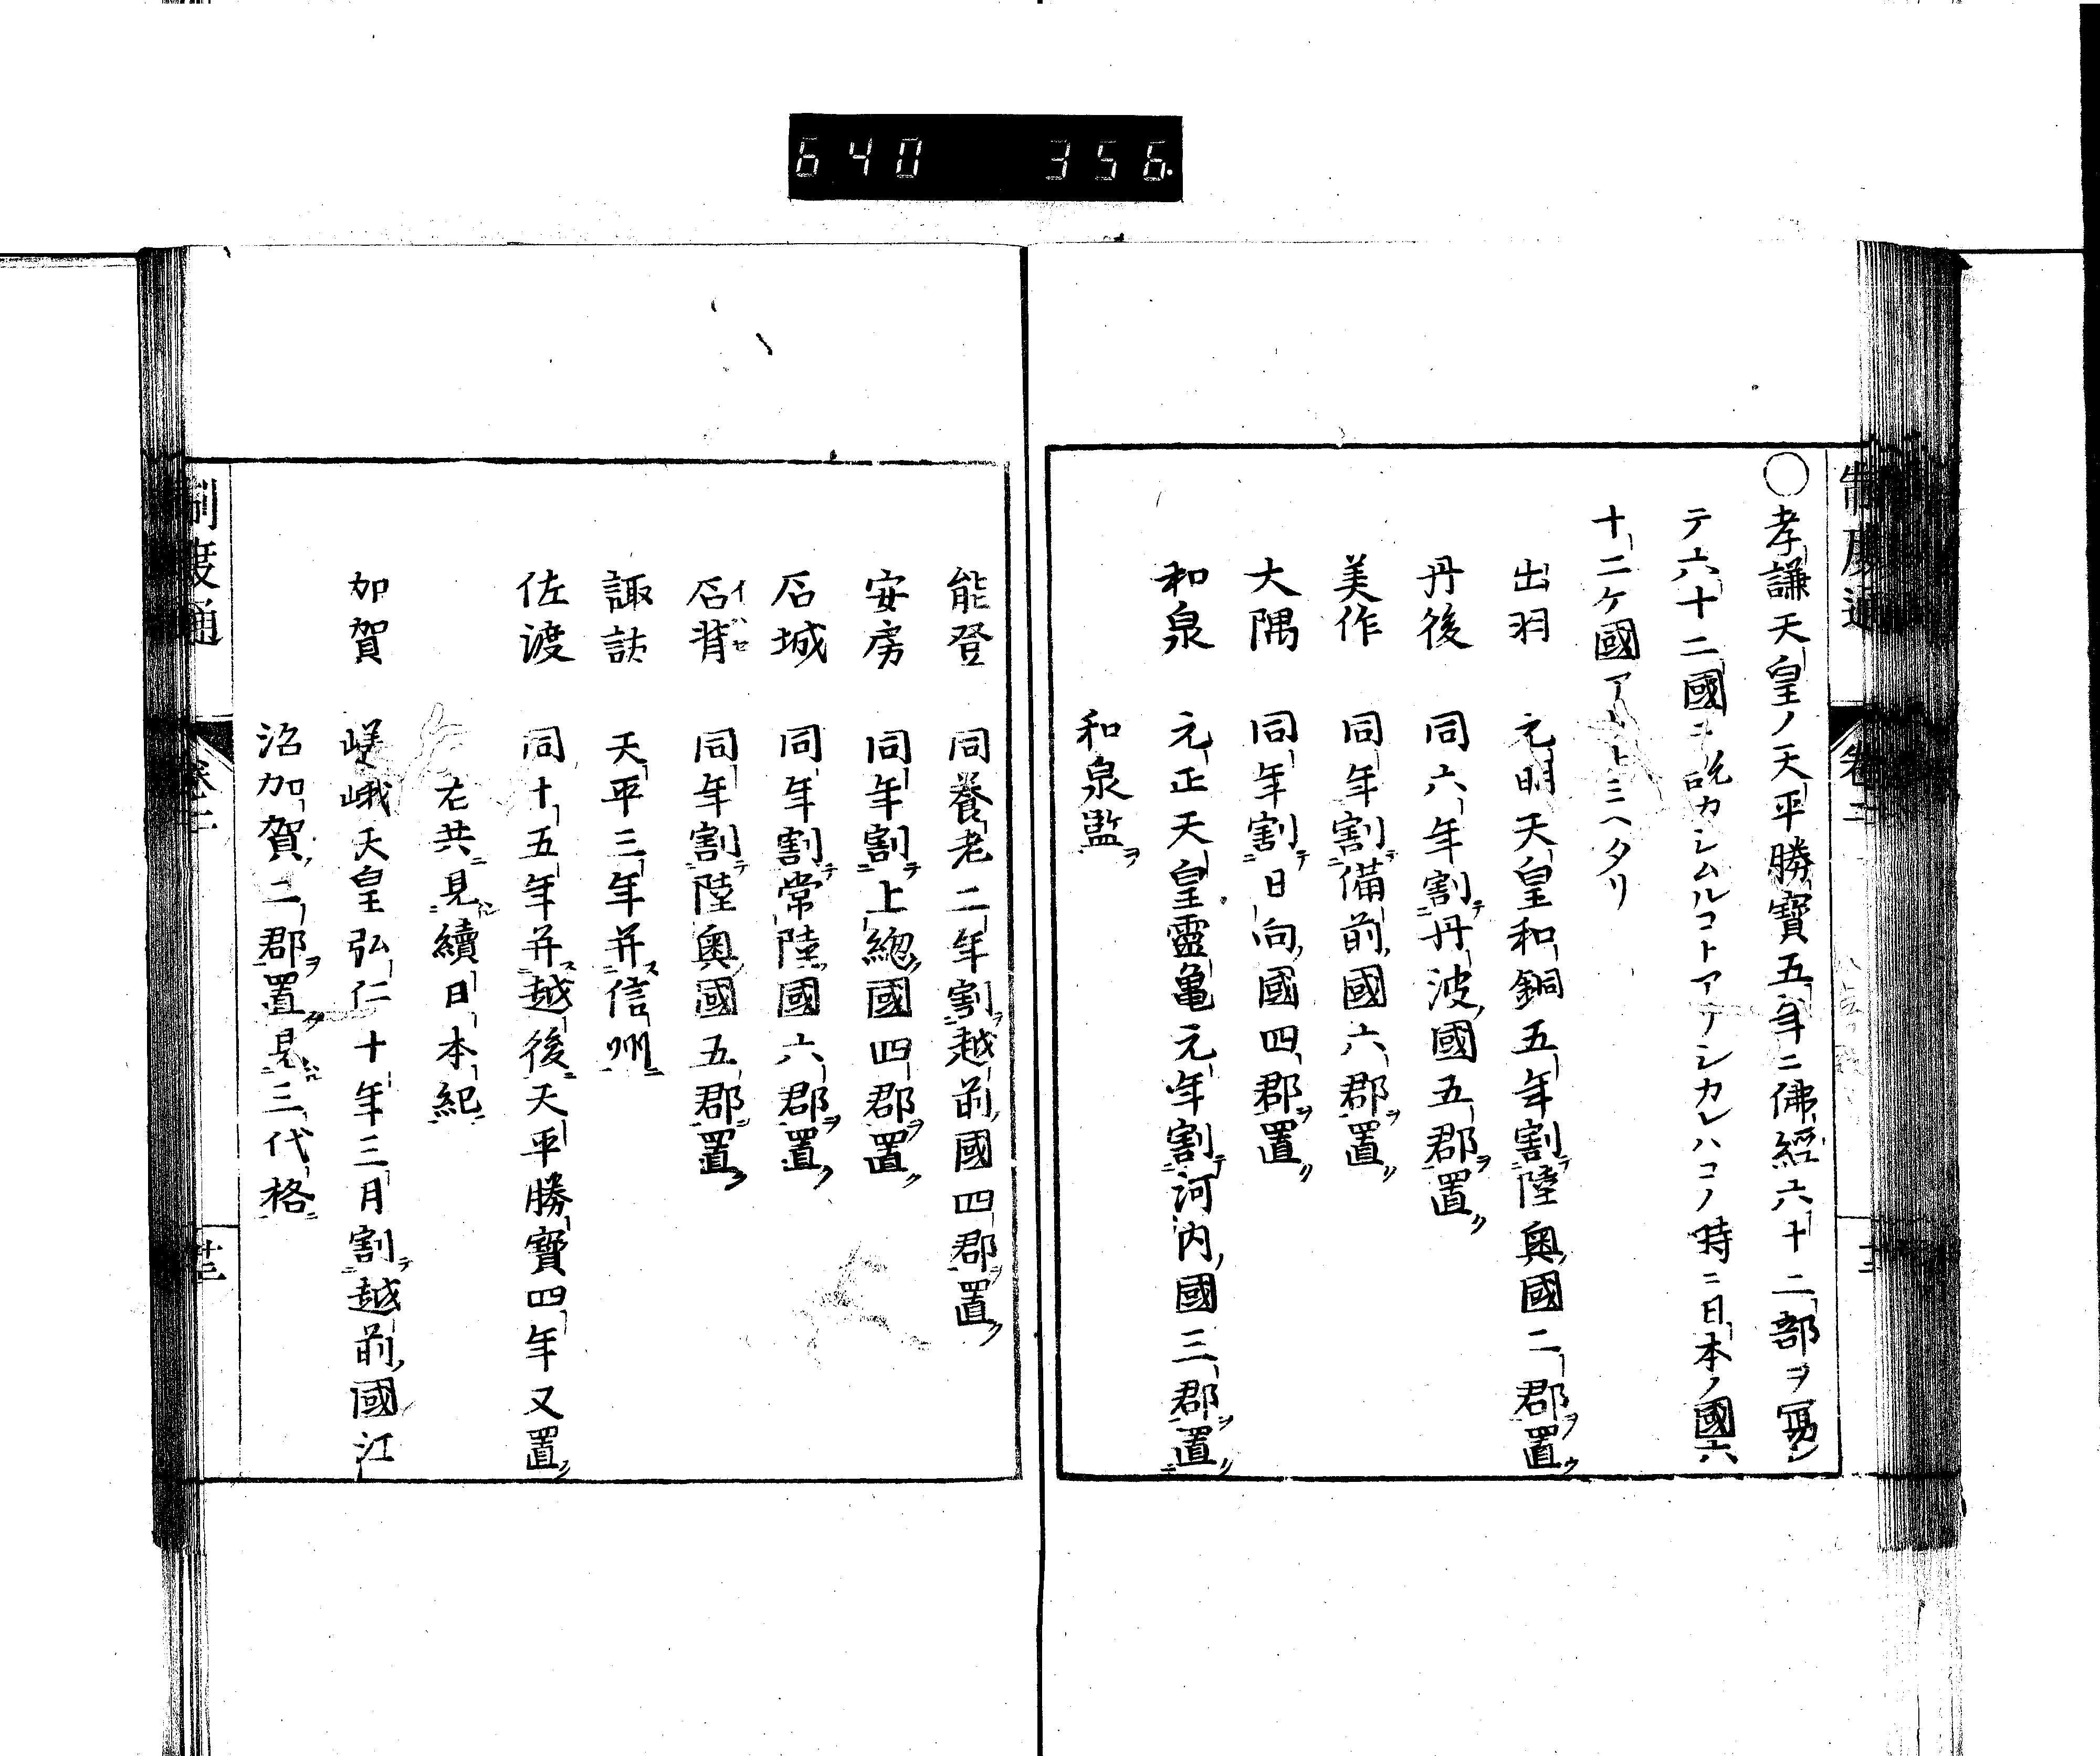 640 356
制度通 卷二
○孝謙天皇ノ天平勝寶五年ニ佛經六十二部ヲ寫シ
テ六十二國ニ説カシムルコトアリシカレハコノ時ニ日本ノ國六
十二ケ國アリトミヘタリ
出羽 元明天皇和銅五年割テ陸奥國二郡ヲ置ク
丹後 同六年割テ丹波國五郡ヲ置ク
美作 同年割テ備前國六郡ヲ置ク
大隅 同年割テ日向國四郡ヲ置ク
和泉 元正天皇靈亀元年割テ河内國三郡ヲ置ク
和泉監ヲ
能登 同養老二年割テ越前國四郡ヲ置ク
安房 同年割テ上總國四郡ヲ置ク
石城 同年割テ常陸國六郡ヲ置ク
石背イハセ 同年割テ陸奥國五郡ヲ置ク
諏訪 天平三年并ス信州ニ
佐渡 同十五年并ス越後ニ天平勝寶四年又置ク
右共ニ見ユ續日本紀ニ
加賀 嵯峨天皇弘仁十年三月割テ越前國江
沼加賀二郡ヲ置ク見ユ三代格ニ
制度通 卷二